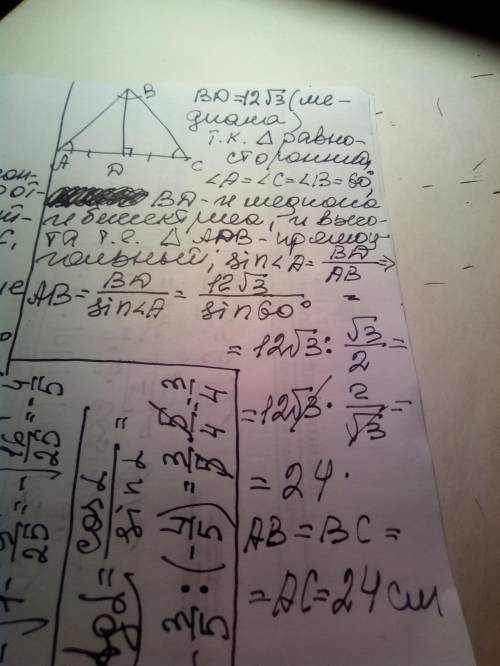 B
A
D
C
BD=12√3 (ме-
диана)
т.к. △ равно-
сторонний,
∠A=∠C=∠B=60°
BD - и медиана
и биссектриса, и высо-
та т.е. △ ADB - прямоу
гольный, sin∠A = BD/AB ⇒
AB = BD/sin∠A = 12√3/sin60° =
= 12√3 : √3/2 =
= 12√3 · 2/√3 =
= 24.
AB = BC =
= AC = 24 см
25 = -√16/25 = -4/5
tgα = cosα/sinα =
-3/5 : (-4/5) = 3/5 · 5/4 = 3/4